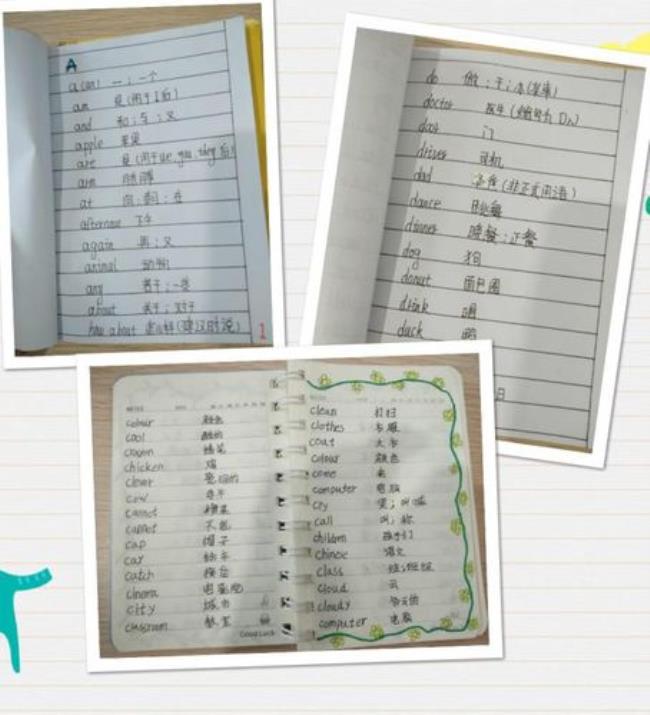 A
a (an) 一；一个
am 是(用于I后)
and 和；与；又
apple 苹果
are 是(用于we, you, they后)
arm 胳膊
at 向；在
afternoon 下午
again 再；又
animal 动物
any 若干；一些
about 关于；对于
how about 怎么样(建议时说)
1
do 做；干；
doctor 医生(缩略为Dr.)
door 门
driver 司机
dad 爸爸(非正式用语)
dance 跳舞
dinner 晚餐；正餐
dog 狗
donut 面包圈
drink 喝
duck 鸭
日
NOTES
colour 颜色
cool 酷的
crayon 蜡笔
chicken 鸡
clever 聪明的
cow 母牛
carrot
cannot 不能
cap 帽子
car 轿车
catch 接住
cinema 电影院
city 城市
classroom 教室
Good Luck
NOTES
clean 打扫
clothes 衣服
coat 大衣
colour 颜色
come 来
computer 电脑
cry 哭；叫喊
call 叫；称
children 孩子们
chinese 语文
class 班；班级
cloud 云
cloudy 多云的
computer 电脑